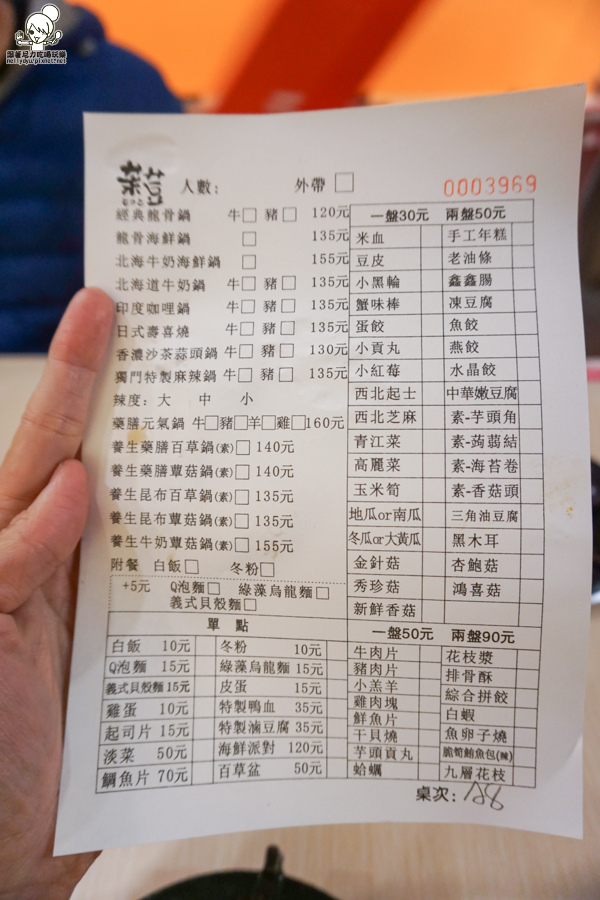 跟著尼力吃喝玩樂
nellydyu.pixnet.net
菜荳
人數: 外帶 □ 0003969
經典龍骨鍋 牛□ 豬□ 120元
龍骨海鮮鍋 □ 135元
北海牛奶海鮮鍋 □ 155元
北海道牛奶鍋 牛□ 豬□ 135元
印度咖哩鍋 牛□ 豬□ 135元
日式壽喜燒 牛□ 豬□ 135元
香濃沙茶蒜頭鍋 牛□ 豬□ 130元
獨門特製麻辣鍋 牛□ 豬□ 135元
辣度: 大 中 小
藥膳元氣鍋 牛□豬□羊□雞□160元
養生藥膳百草鍋(素)□ 140元
養生藥膳蕈菇鍋(素)□ 140元
養生昆布百草鍋(素)□ 135元
養生昆布蕈菇鍋(素)□ 135元
養生牛奶蕈菇鍋(素)□ 155元
附餐 白飯□ 冬粉□
+5元 Q泡麵□ 綠藻烏龍麵□
義式貝殼麵□
一盤30元 兩盤50元
米血 手工年糕
豆皮 老油條
小黑輪 鑫鑫腸
蟹味棒 凍豆腐
蛋餃 魚餃
小貢丸 燕餃
小紅莓 水晶餃
西北起士 中華嫩豆腐
西北芝麻 素-芋頭角
青江菜 素-蒟蒻結
高麗菜 素-海苔卷
玉米筍 素-香菇頭
地瓜or南瓜 三角油豆腐
冬瓜or大黃瓜 黑木耳
金針菇 杏鮑菇
秀珍菇 鴻喜菇
新鮮香菇
單 點
白飯 10元 冬粉 10元
Q泡麵 15元 綠藻烏龍麵 15元
義式貝殼麵 15元 皮蛋 15元
雞蛋 10元 特製鴨血 35元
起司片 15元 特製滷豆腐 35元
淡菜 50元 海鮮派對 120元
鯛魚片 70元 百草盆 50元
一盤50元 兩盤90元
牛肉片 花枝漿
豬肉片 排骨酥
小羔羊 綜合拼餃
雞肉塊 白蝦
鮮魚片 魚卵子燒
干貝燒 脆筍鮪魚包(辣)
芋頭貢丸 九層花枝
蛤蠣
桌次: